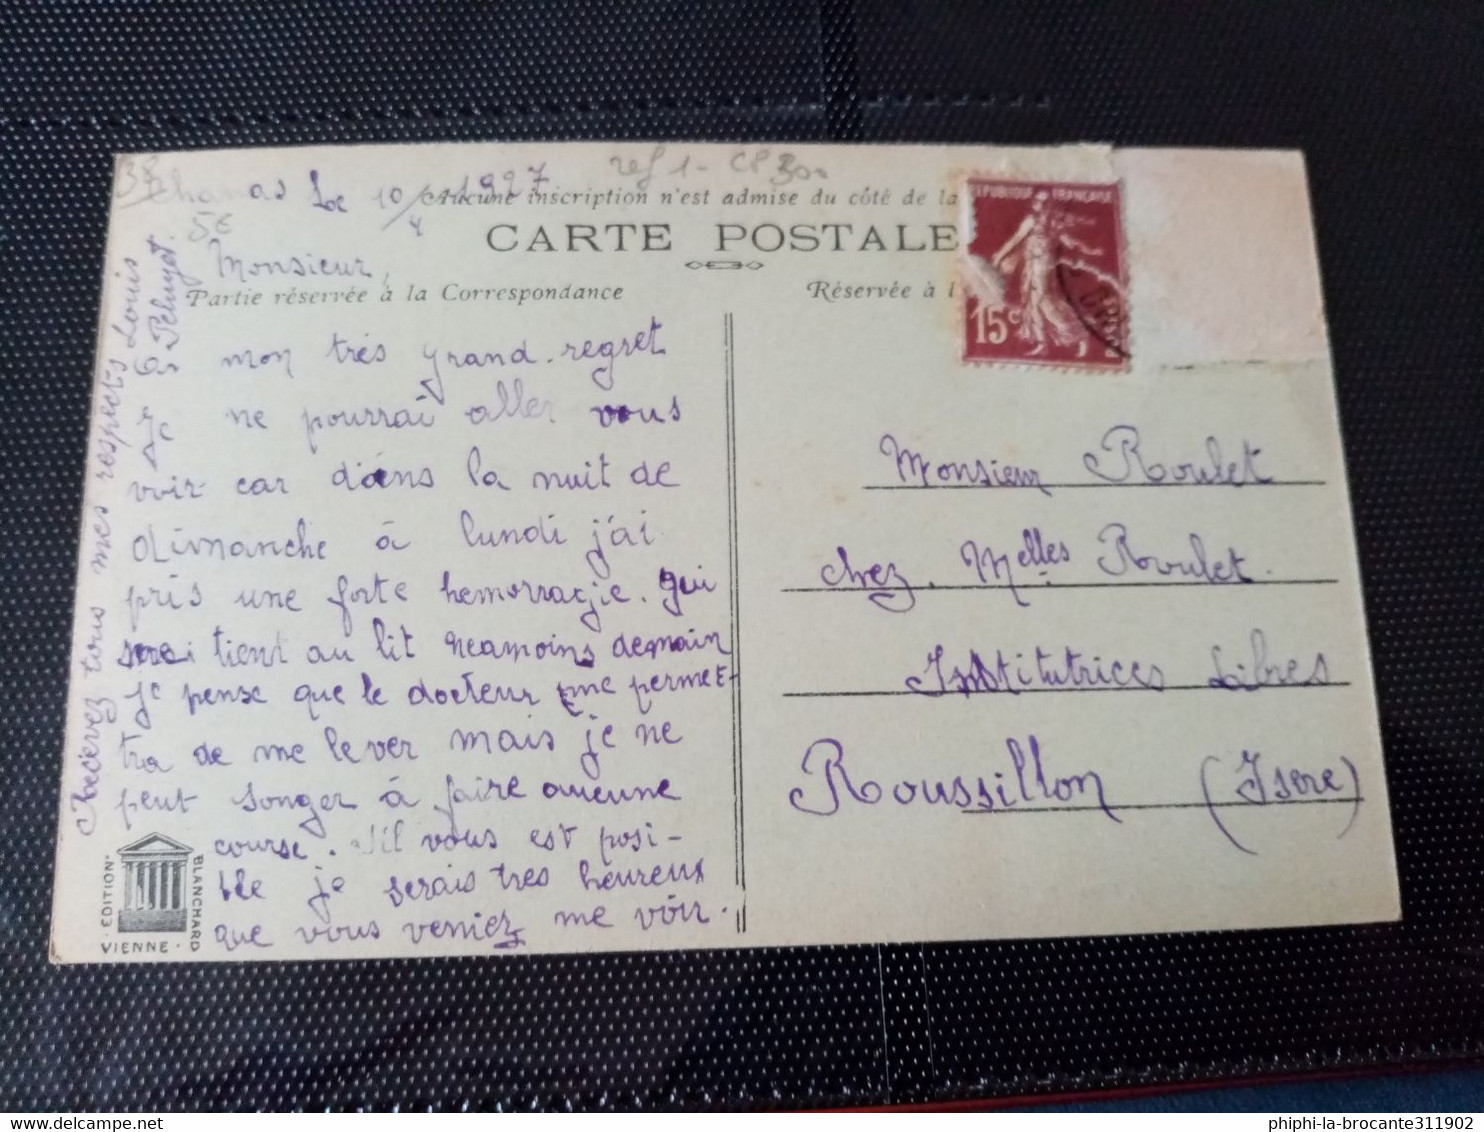 38
ref 1 - CP 300
Chanas Le 10/4 1927
Aucune inscription n'est admise du côté de la
5€
CARTE POSTALE
Monsieur,
Partie réservée à la Correspondance
Réservée à l
RÉPUBLIQUE FRANÇAISE
15c
mon très grand regret
Je ne pourrai aller vous
voir car dans la nuit de
dimanche à lundi j'ai
pris une forte hemorragie. qui
tient au lit neamoins demain
je pense que le docteur me permet-
tra de me lever mais je ne
peut songer à faire aucune
course. S'il vous est posi-
ble je serais tres heureux
que vous veniez me voir.
Recevez tous mes respects Louis
Peluyet.
Monsieur Roulet
chez. Melles Roulet.
Institutrices Libres
Roussillon (Isere)
EDITION BLANCHARD VIENNE
phiphi-la-brocante311902